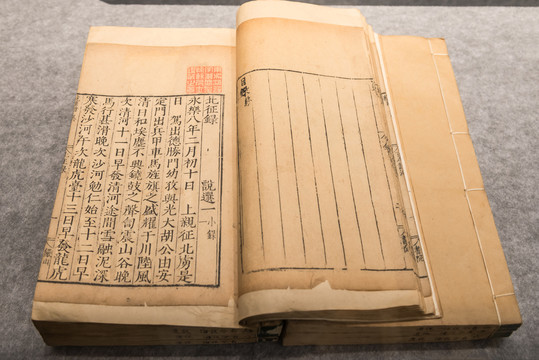 北征錄　說選一　小錄
永樂八年二月初十日　上親征北虜是
日　駕出德勝門幼孜與光大胡公由安
定門出兵甲車馬旌旗之盛耀于川陸風
清日和埃塵不興鐃鼓之聲訇震山谷晚
次清河十一日早發清河途間雪融泥深
馬行甚滑晚次沙河勉仁始至十二日早
發沙河午次龍虎臺十三日早發龍虎